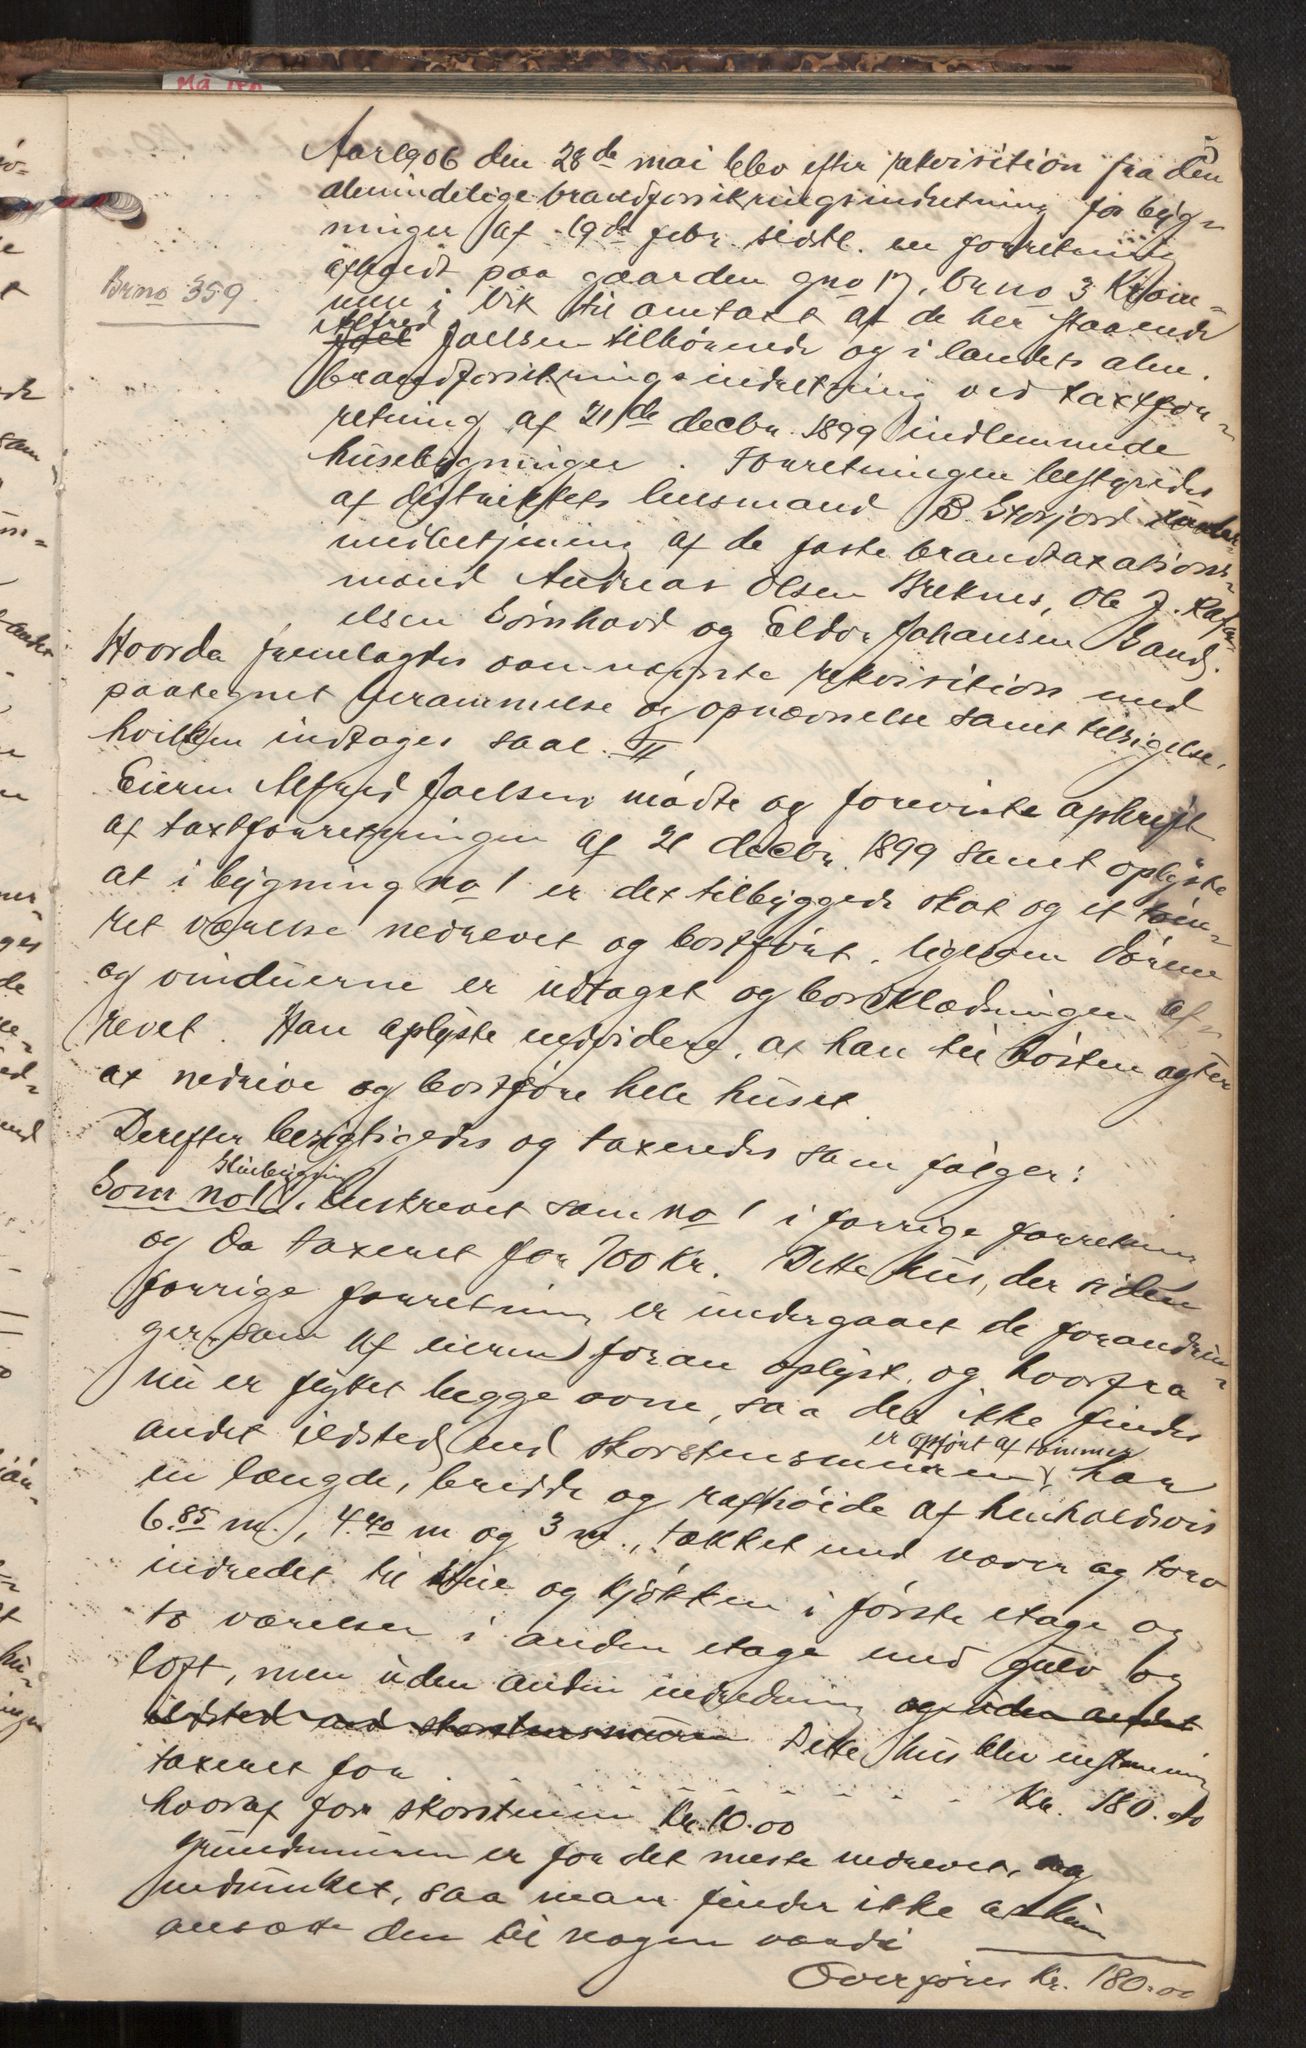 5
Aar 1906 den 28de mai blev efter rekvisition fra den
almindelige brandforsikringsindretning for byg-
ninger af 19de febr. sidstl. en forretning
afholdt paa gaarden gno 17, brno 3
Brno 359.
i Vik til omtaxt af de her staaende
Alfred
Joel Joelsen tilhørende og i landets alm.
brandforsikringsindretning ved taxtfor-
retning af 21de decbr. 1899 indlemmede
husebygninger. Forretningen bestyredes
af distriktets lensmand B. Storjord under
medbetjening af de faste brandtaxations-
mænd Andreas Olsen Breknes, Ole J. Rafa-
elsen Sørnhovd og Eldor Johansen Sand.
Hvorda fremlagdes ovennævnte rekvisition med
paategnet berammelse og opnævnelse samt tilsigelse,
hvilken indtages saal. II
Eieren Alfred Joelsen mødte og foreviste afskrift
af taxtforretningen af 21 decbr. 1899 samt oplyste
at i bygning no 1 er det tilbyggede skot og et tøm-
ret værelse nedrevet og bortført, ligesom dørene
og vinduerne er udtaget og bordklædningen af-
revet. Han oplyste endvidere, at han til høsten agter
at nedrive og bortføre hele huset.
Derefter besigtigedes og taxeredes som følger:
Stuebygnin
Som no 1, beskrevet som no 1 i forrige forretning
og da taxeret for 700 kr. Dette hus, der siden
forrige forretning er undergaaet de forandrin-
ger, som af eieren foran oplyst, og hvorfra
nu er flyttet begge ovne, saa der ikke findes
andet ildsted end skorstensmuren
er opført af tømmer
har
en længde, bredde og rafthøide af henholdsvis
6.85 m., 4.40 m og 3 m., tækket med næver og torv
indredet til stue og kjøkken i første etage og
to værelser i anden etage med gulv og
loft, men uden anden indredning og uden andet
ildsted end skorstensmuren Dette hus blev enstemmig
taxeret for . . . . . . . . . . Kr. 180.00
hvoraf for skorstenen kr. 10.00
Grundmuren er for det meste nedrevet, og
nedsunket, saa man finder ikke at kun
ansætte den til nogen værdi
Overføres Kr. 180.00